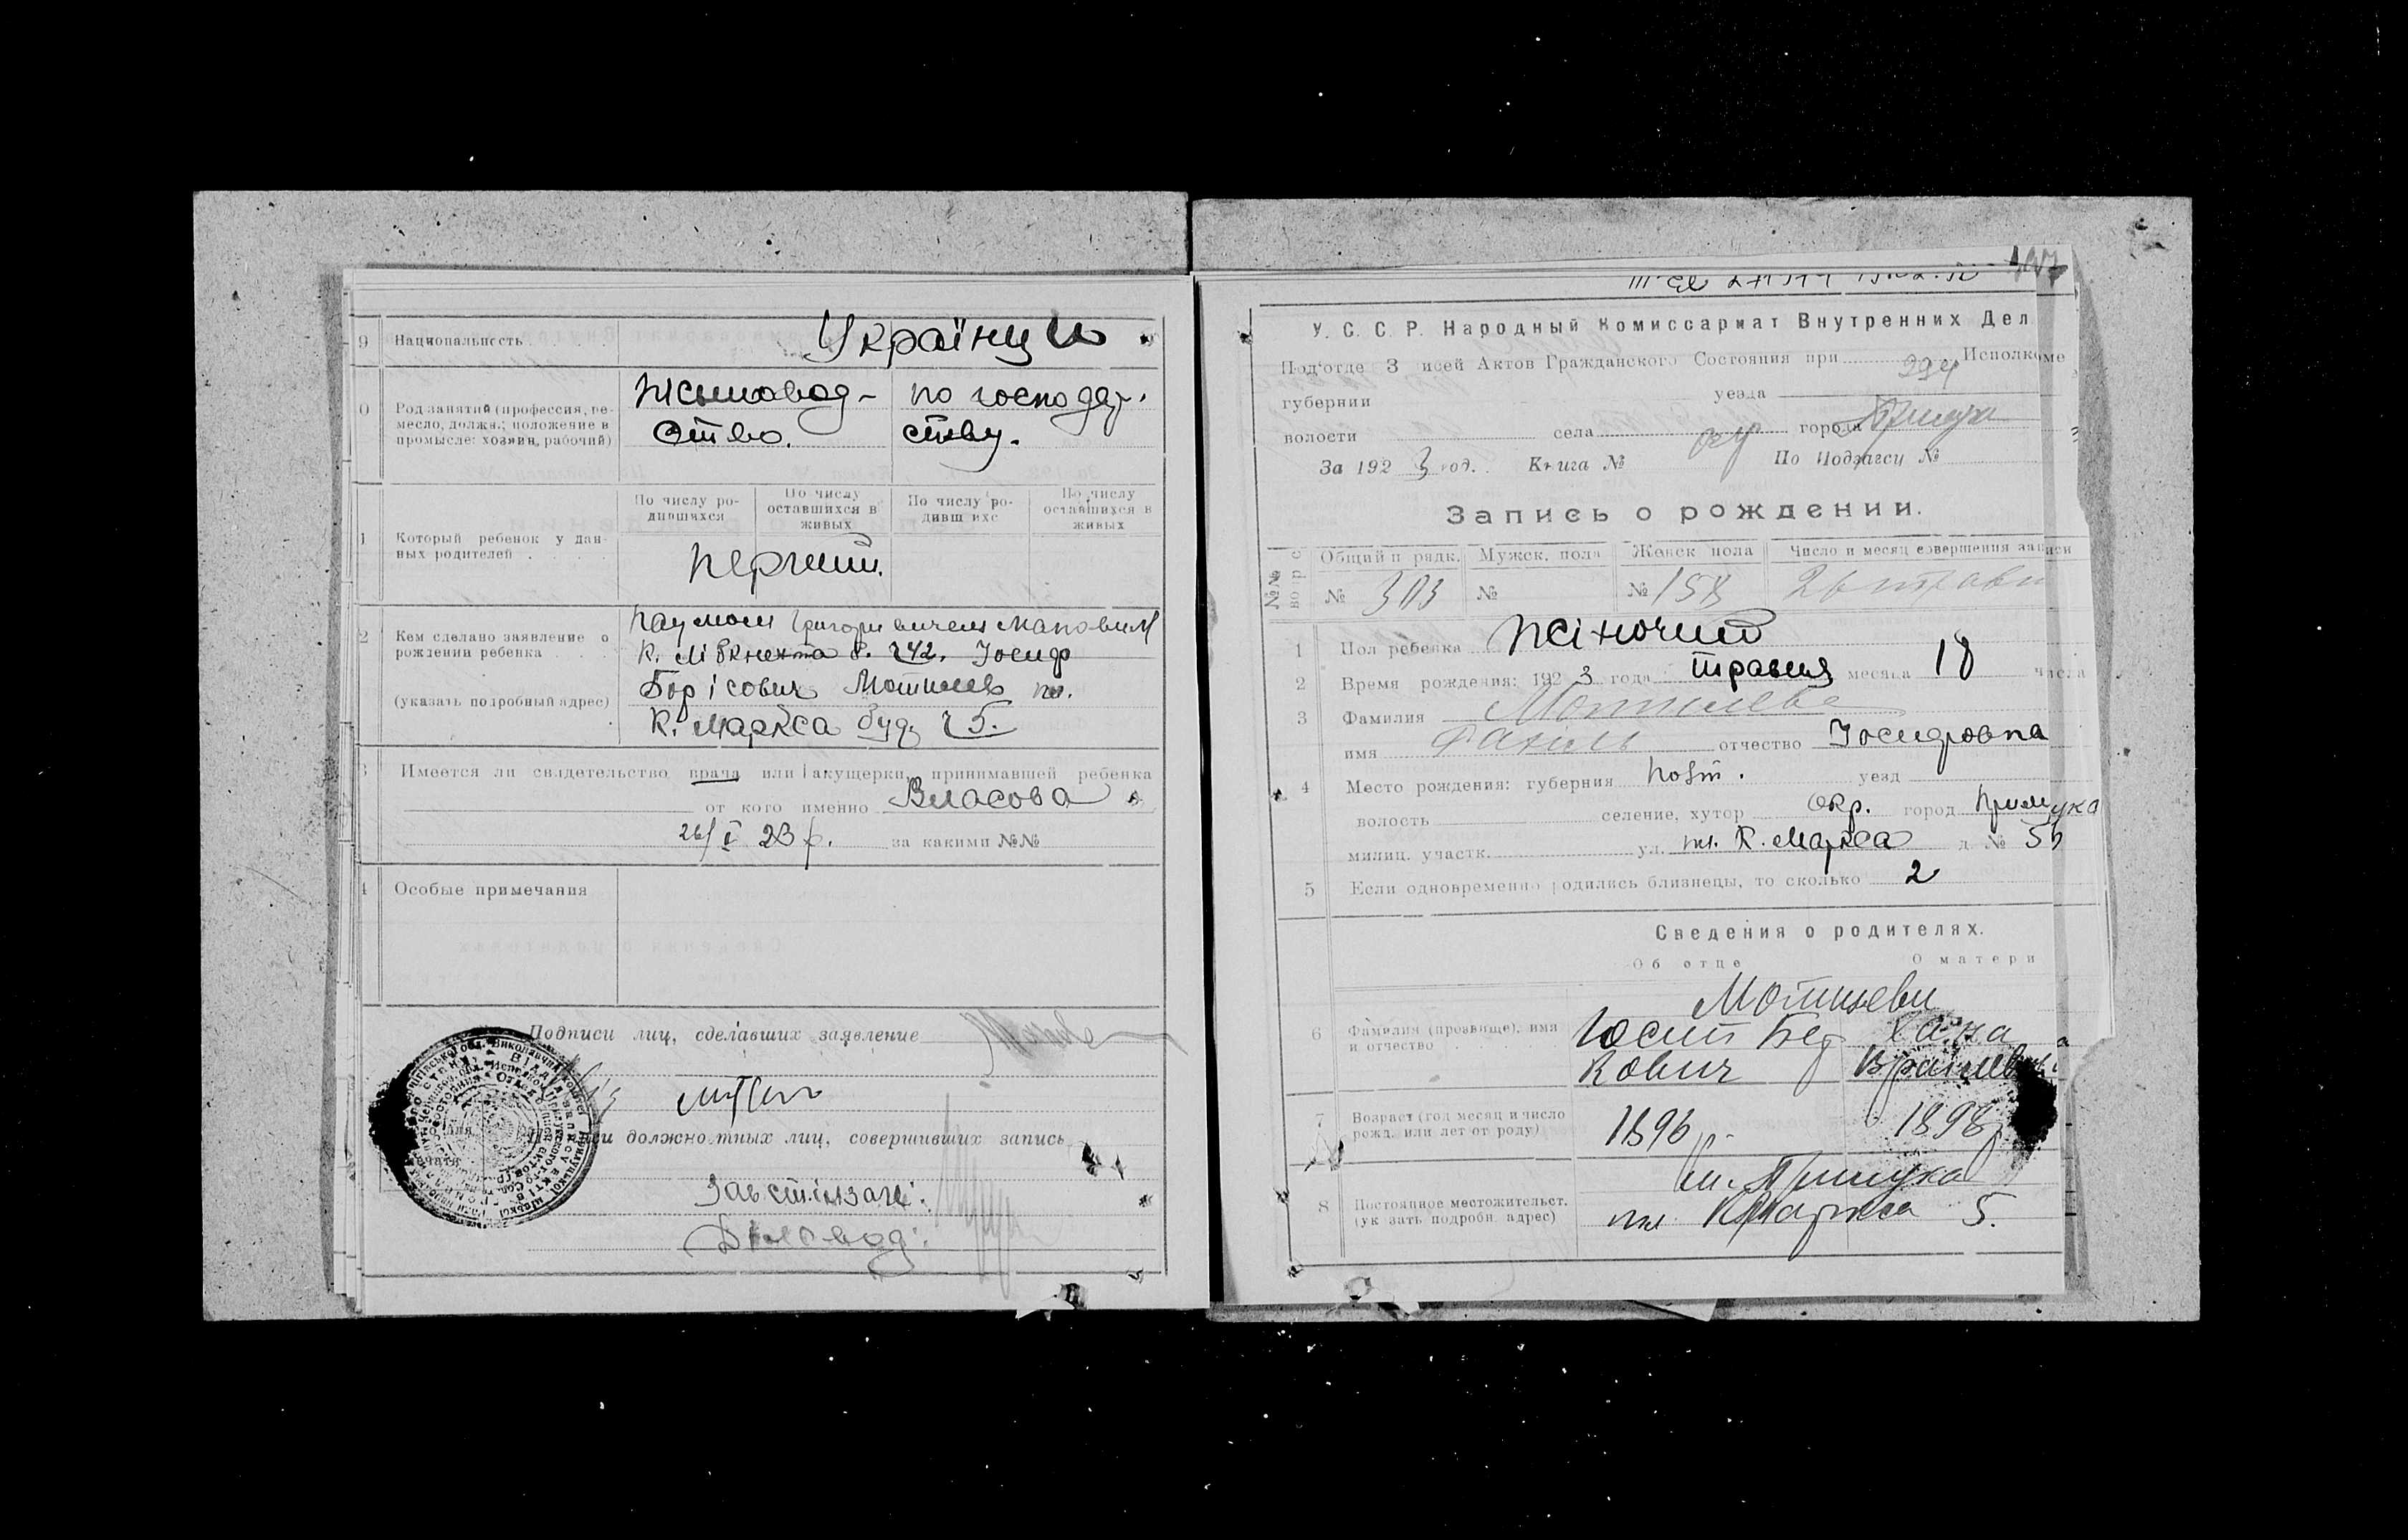 9 Национальность Українці
0 Род занятий (профессия, ре-
месло, должн.; положение в
промысле: хозяин, рабочий)
по господар.
ство. ству.
1 Который ребенок у дан-
ных родителей
По числу ро-
дившихся
По числу
оставшихся в
живых
По числу ро-
дивш ихс
По числу
оставшихся в
живых
перший.
2 Кем сделано заявление о
рождении ребенка
(указать подробный адрес)
Наумом Григоричем
К. Лібкнехта б. ч 42. Іосиф
Борісович Мотилев пл.
К. Маркса буд. ч 5.
3 Имеется ли свидетельство врача или акушерки, принимавшей ребенка
от кого именно Власова
26/V 23 р. за какими №№
4 Особые примечания
Подписи лиц, сделавших заявление
должностных лиц, совершивших запись
Діловод:
У. С. С. Р. Народный Комиссариат Внутренних Дел
Под'отде З исей Актов Гражданского Состояния при Исполкоме
губернии уезда
волости села города Прилука
За 192 3 год. Книга № По Подзагсу №
Запись о рождении.
№№ Общий п рядк. Мужск. пола Женск пола Число и месяц совершения записи
№ 303 № № 158 26 травн
1 Пол ребенка Жіночий
2 Время рождения: 192 3 года травня месяца 18 числа
3 Фамилия Мотилева
имя Рахиль отчество Іосифовна
4 Место рождения: губерния Полт. уезд
волость селение, хутор окр. город Прилука
милиц. участк. ул. пл. К. Маркса д № 5
5 Если одновременно родились близнецы, то сколько 2
Сведения о родителях.
Об отце О матери
Мотилеви
6 Фамилия (прозвище), имя
и отчество
Юсип Бер Хана
кович
7 Возраст (год месяц и число
рожд. или лет от роду)
1896 р. 1898 р.
8 Постоянное местожительст.
(ук зать подробн. адрес)
м. Прилука
пл К Маркса 5.